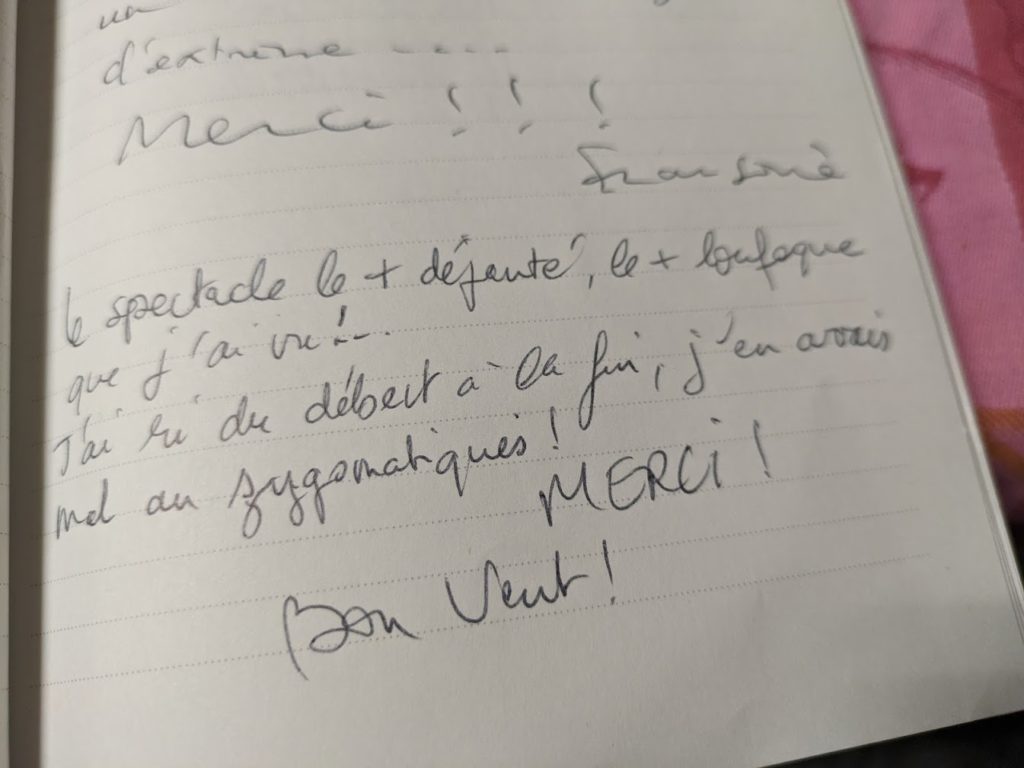 un
d'extrême ----
Merci ! ! !
le spectacle le + déjanté, le + loufoque
que j'ai vu !...
J'ai ri du début à la fin, j'en avais
mal au zygomatiques !
MERCi !
Bon Vent !